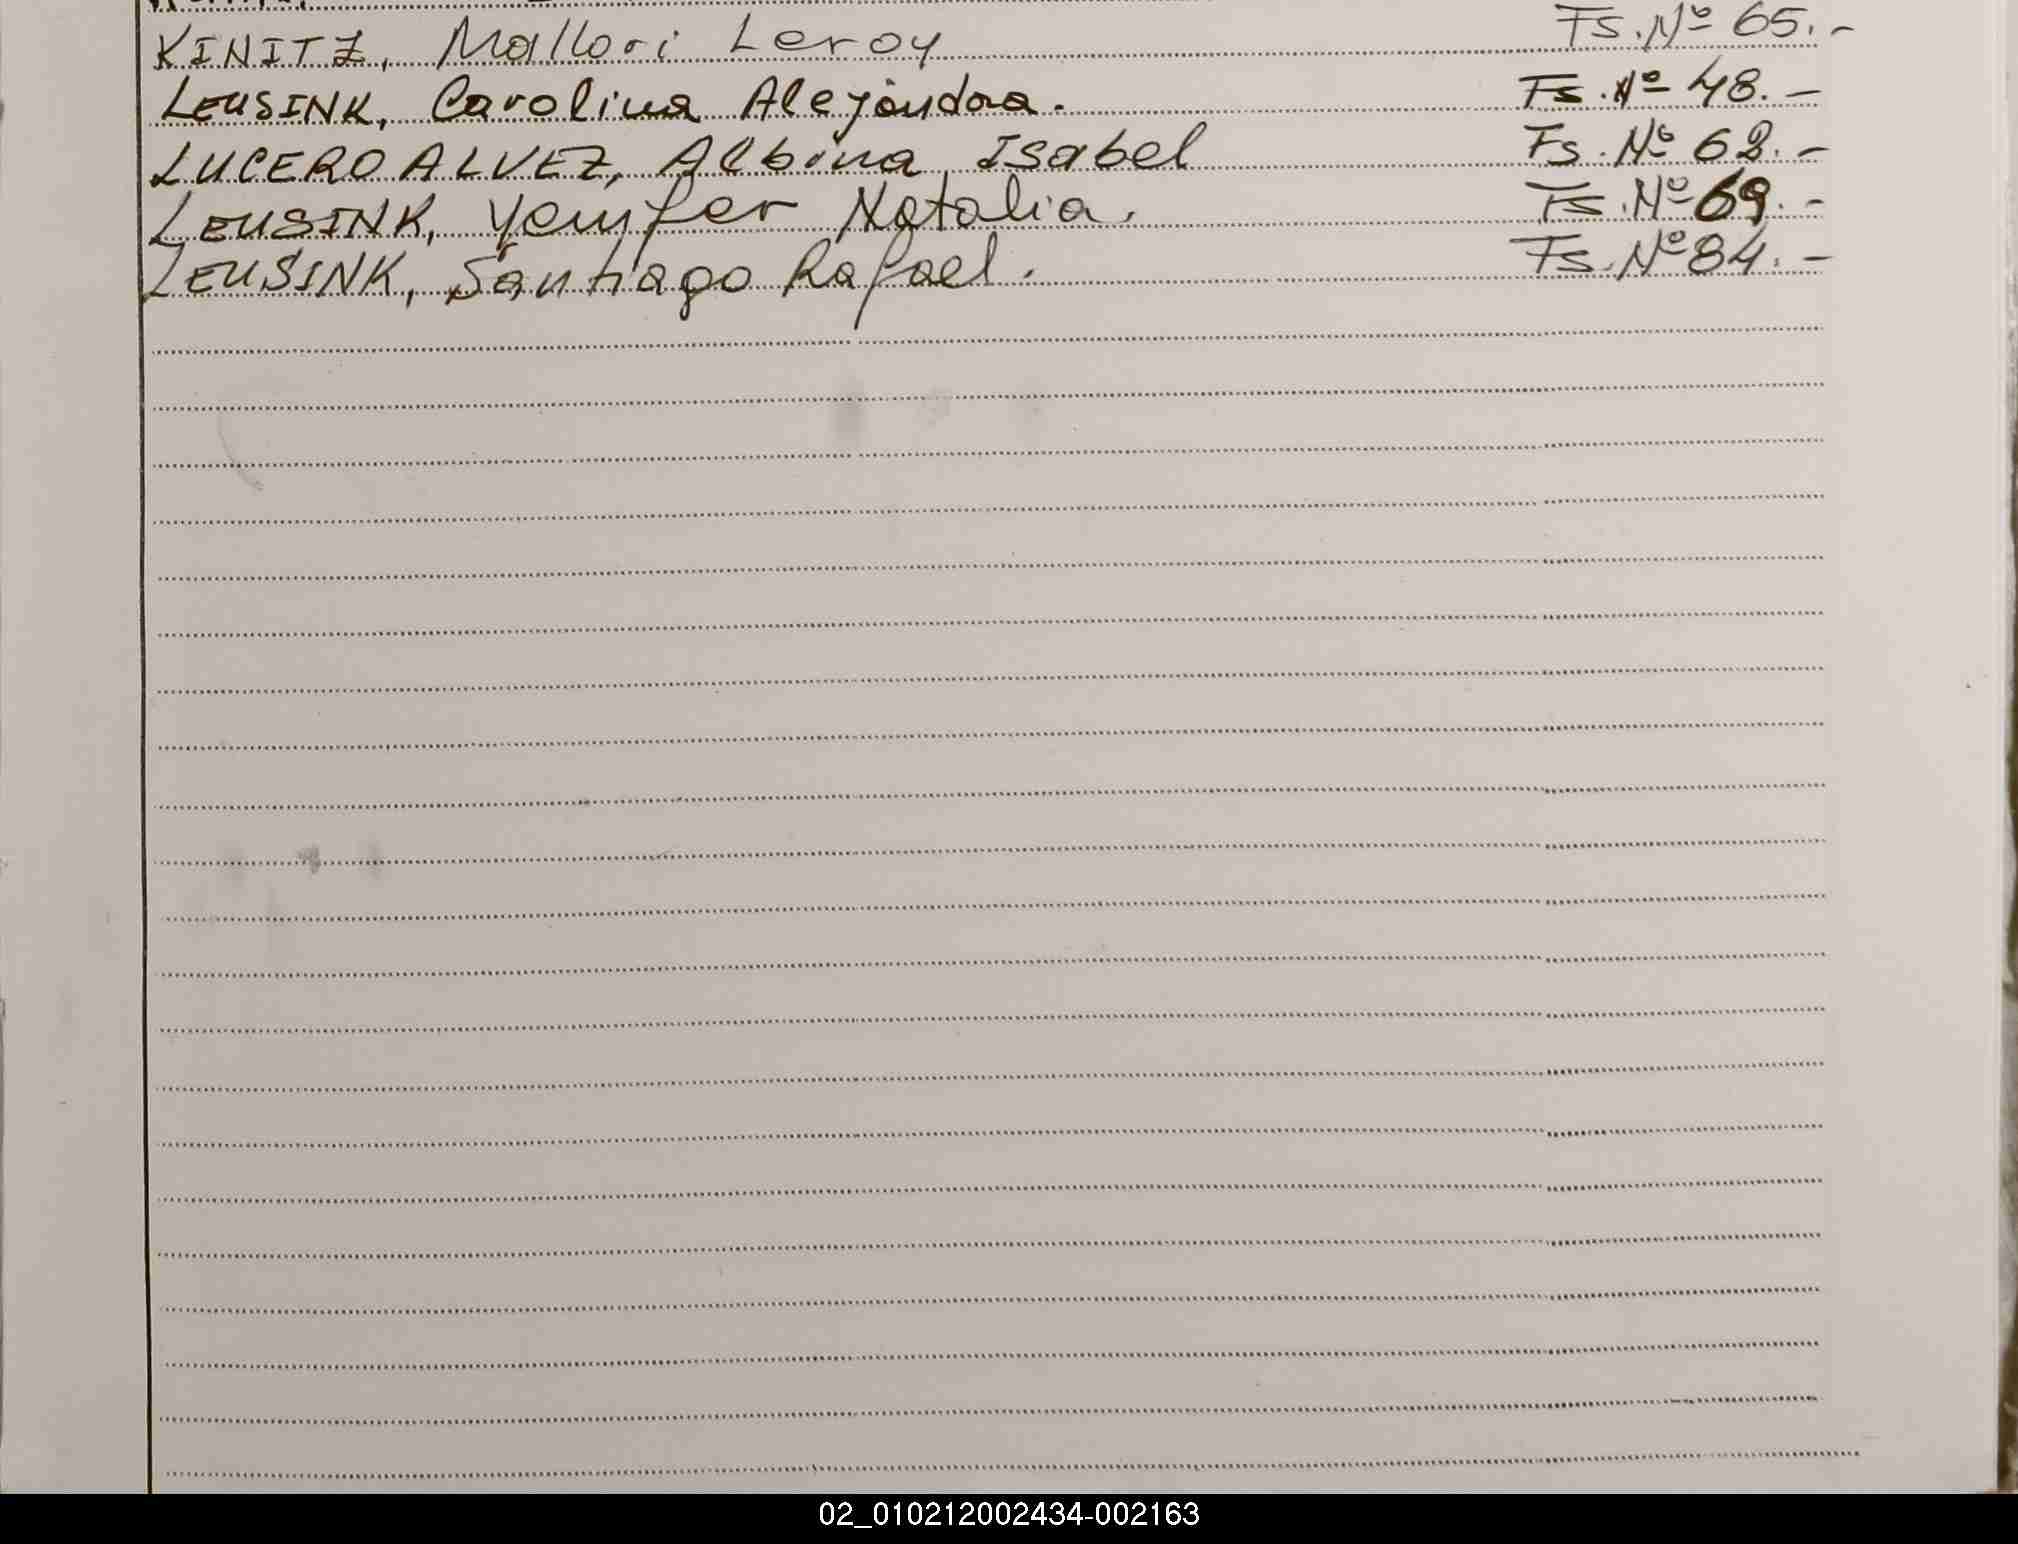 KINITZ, Mallori Leroy Fs. Nº 65.-
LEUSINK, Carolina Alejandra. Fs. Nº 48.-
LUCERO ALVEZ, Albina Isabel Fs. Nº 62.-
LEUSINK, Yenifer Natalia. Fs. Nº 69.-
LEUSINK, Santiago Rafael. Fs. Nº 84.-
02_010212002434-002163